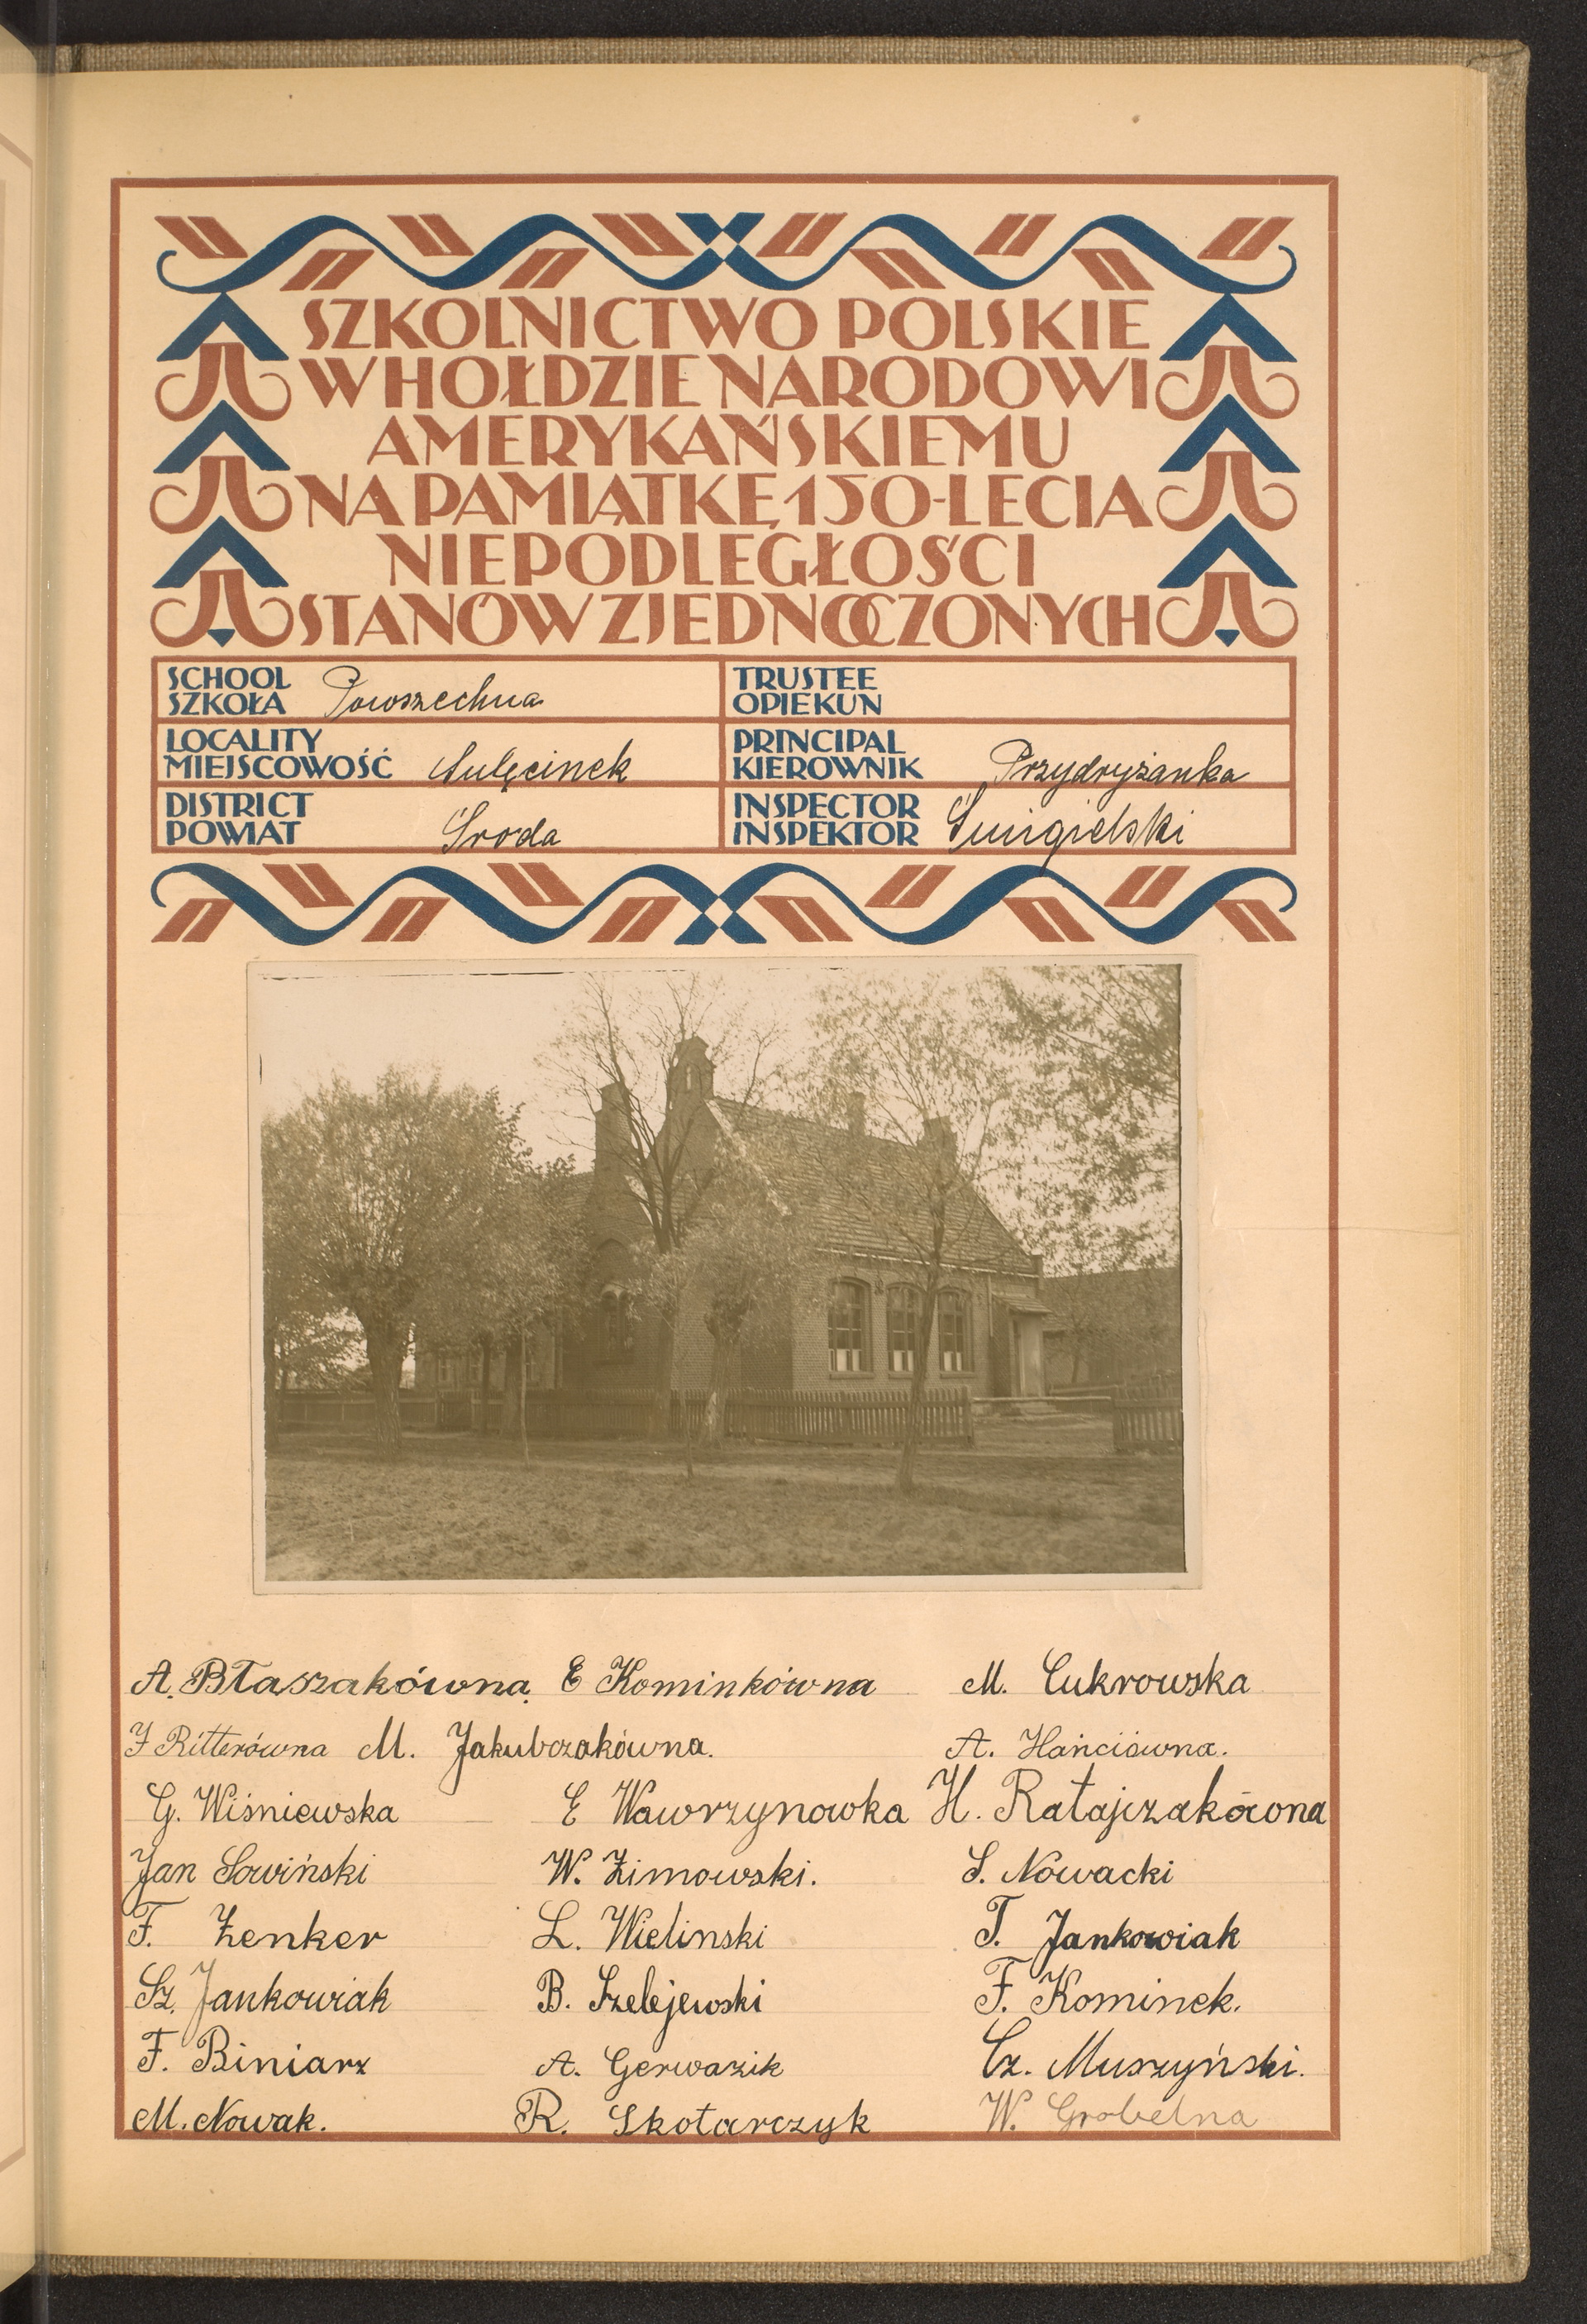 SZKOLNICTWO POLSKIE
W HOŁDZIE NARODOWI
AMERYKAŃSKIEMU
NA PAMIĄTKĘ 150-LECIA
NIEPODLEGŁOŚCI
STANÓW ZJEDNOCZONYCH
SCHOOL
SZKOŁA Powszechna
TRUSTEE
OPIEKUN
LOCALITY
MIEJSCOWOŚĆ Sulęcinek
PRINCIPAL
KIEROWNIK Przydryżanka
DISTRICT
POWIAT Środa
INSPECTOR
INSPEKTOR Śmigielski
A. Błaszakówna. E Kominkówna M. Cukrowska
J Ritterówna M. Jakubczakówna. A. Hańciówna.
G. Wiśniewska E Wawrzynowka H. Ratajczakówna
Jan Sowiński W. Zimowski. S. Nowacki
F. Zenker L. Wielinski T. Jankowiak
Sz. Jankowiak B. Szelejewski F. Kominek.
F. Biniarz A. Gerwazik Cz. Muszyński.
M. Nowak. R. Skotarczyk W. Grobelna